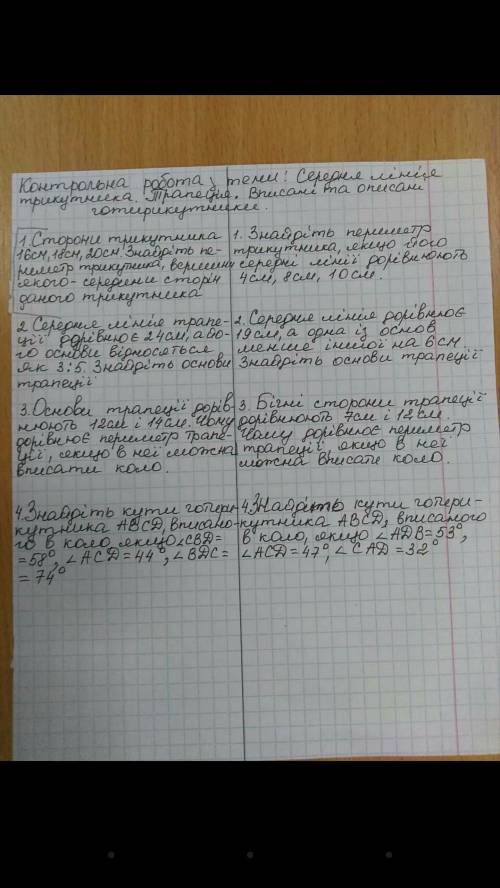 Контрольна робота з теми: Середня лінія
трикутника. Трапеція. Вписані та описані
чотирикутники.
1. Сторони трикутника
16см, 18см, 20см. Знайдіть пе-
риметр трикутника, вершини
якого - середини сторін
даного трикутника
2. Середня лінія трапе-
ції дорівнює 24см, а йо-
го основи відносяться
як 3:5. Знайдіть основи
трапеції
3. Основи трапеції дорів
нюють 12см і 14см. Чому
дорівнює периметр трапе-
ції, якщо в неї можна
вписати коло.
4. Знайдіть кути чотири-
кутника ABCD, вписано-
го в коло, якщо ∠CBD=
=58°, ∠ACD=44°, ∠BDC=
=74°
1. Знайдіть периметр
трикутника, якщо його
середні лінії дорівнюють
4см, 8см, 10см.
2. Середня лінія дорівнює
19см, а одна із основ
менше іншої на 6см
Знайдіть основи трапеції
3. Бічні сторони трапеції
дорівнюють 7см і 12см.
Чому дорівнює периметр
трапеції, якщо в неї
можна вписати коло.
4. Знайдіть кути чотири-
кутника ABCD, вписаного
в коло, якщо ∠ADB=53°,
∠ACD=47°, ∠CAD=32°